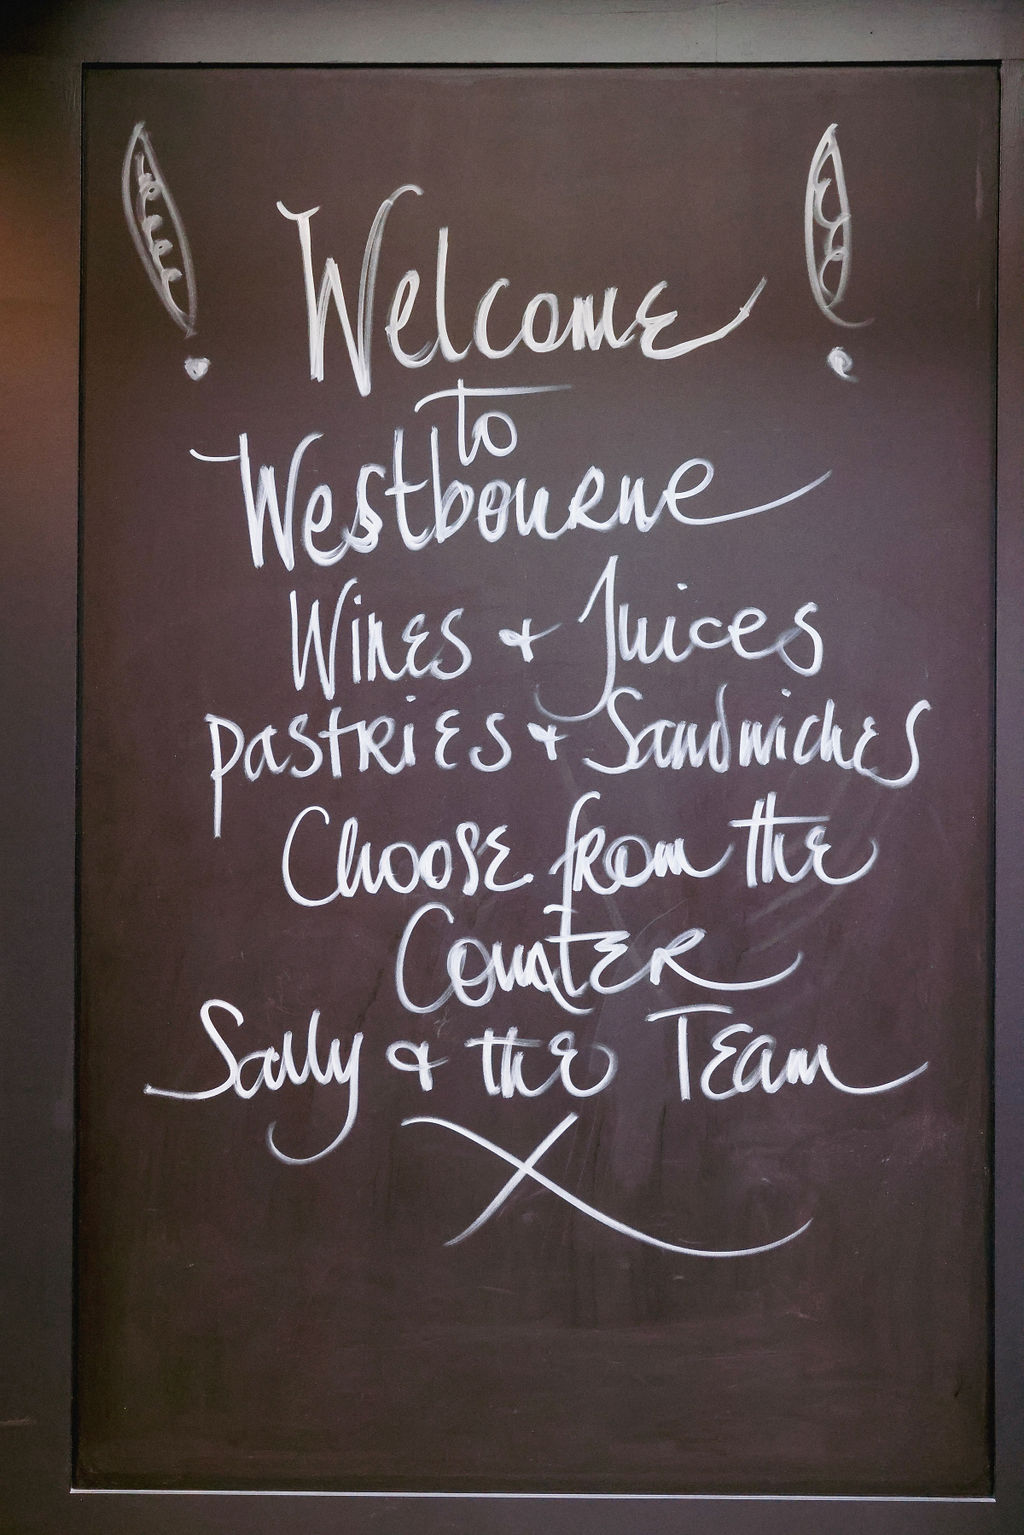 ! Welcome !
to
Westbourne
Wines + Juices
Pastries + Sandwiches
Choose from the
Counter
Sally & the Team
X